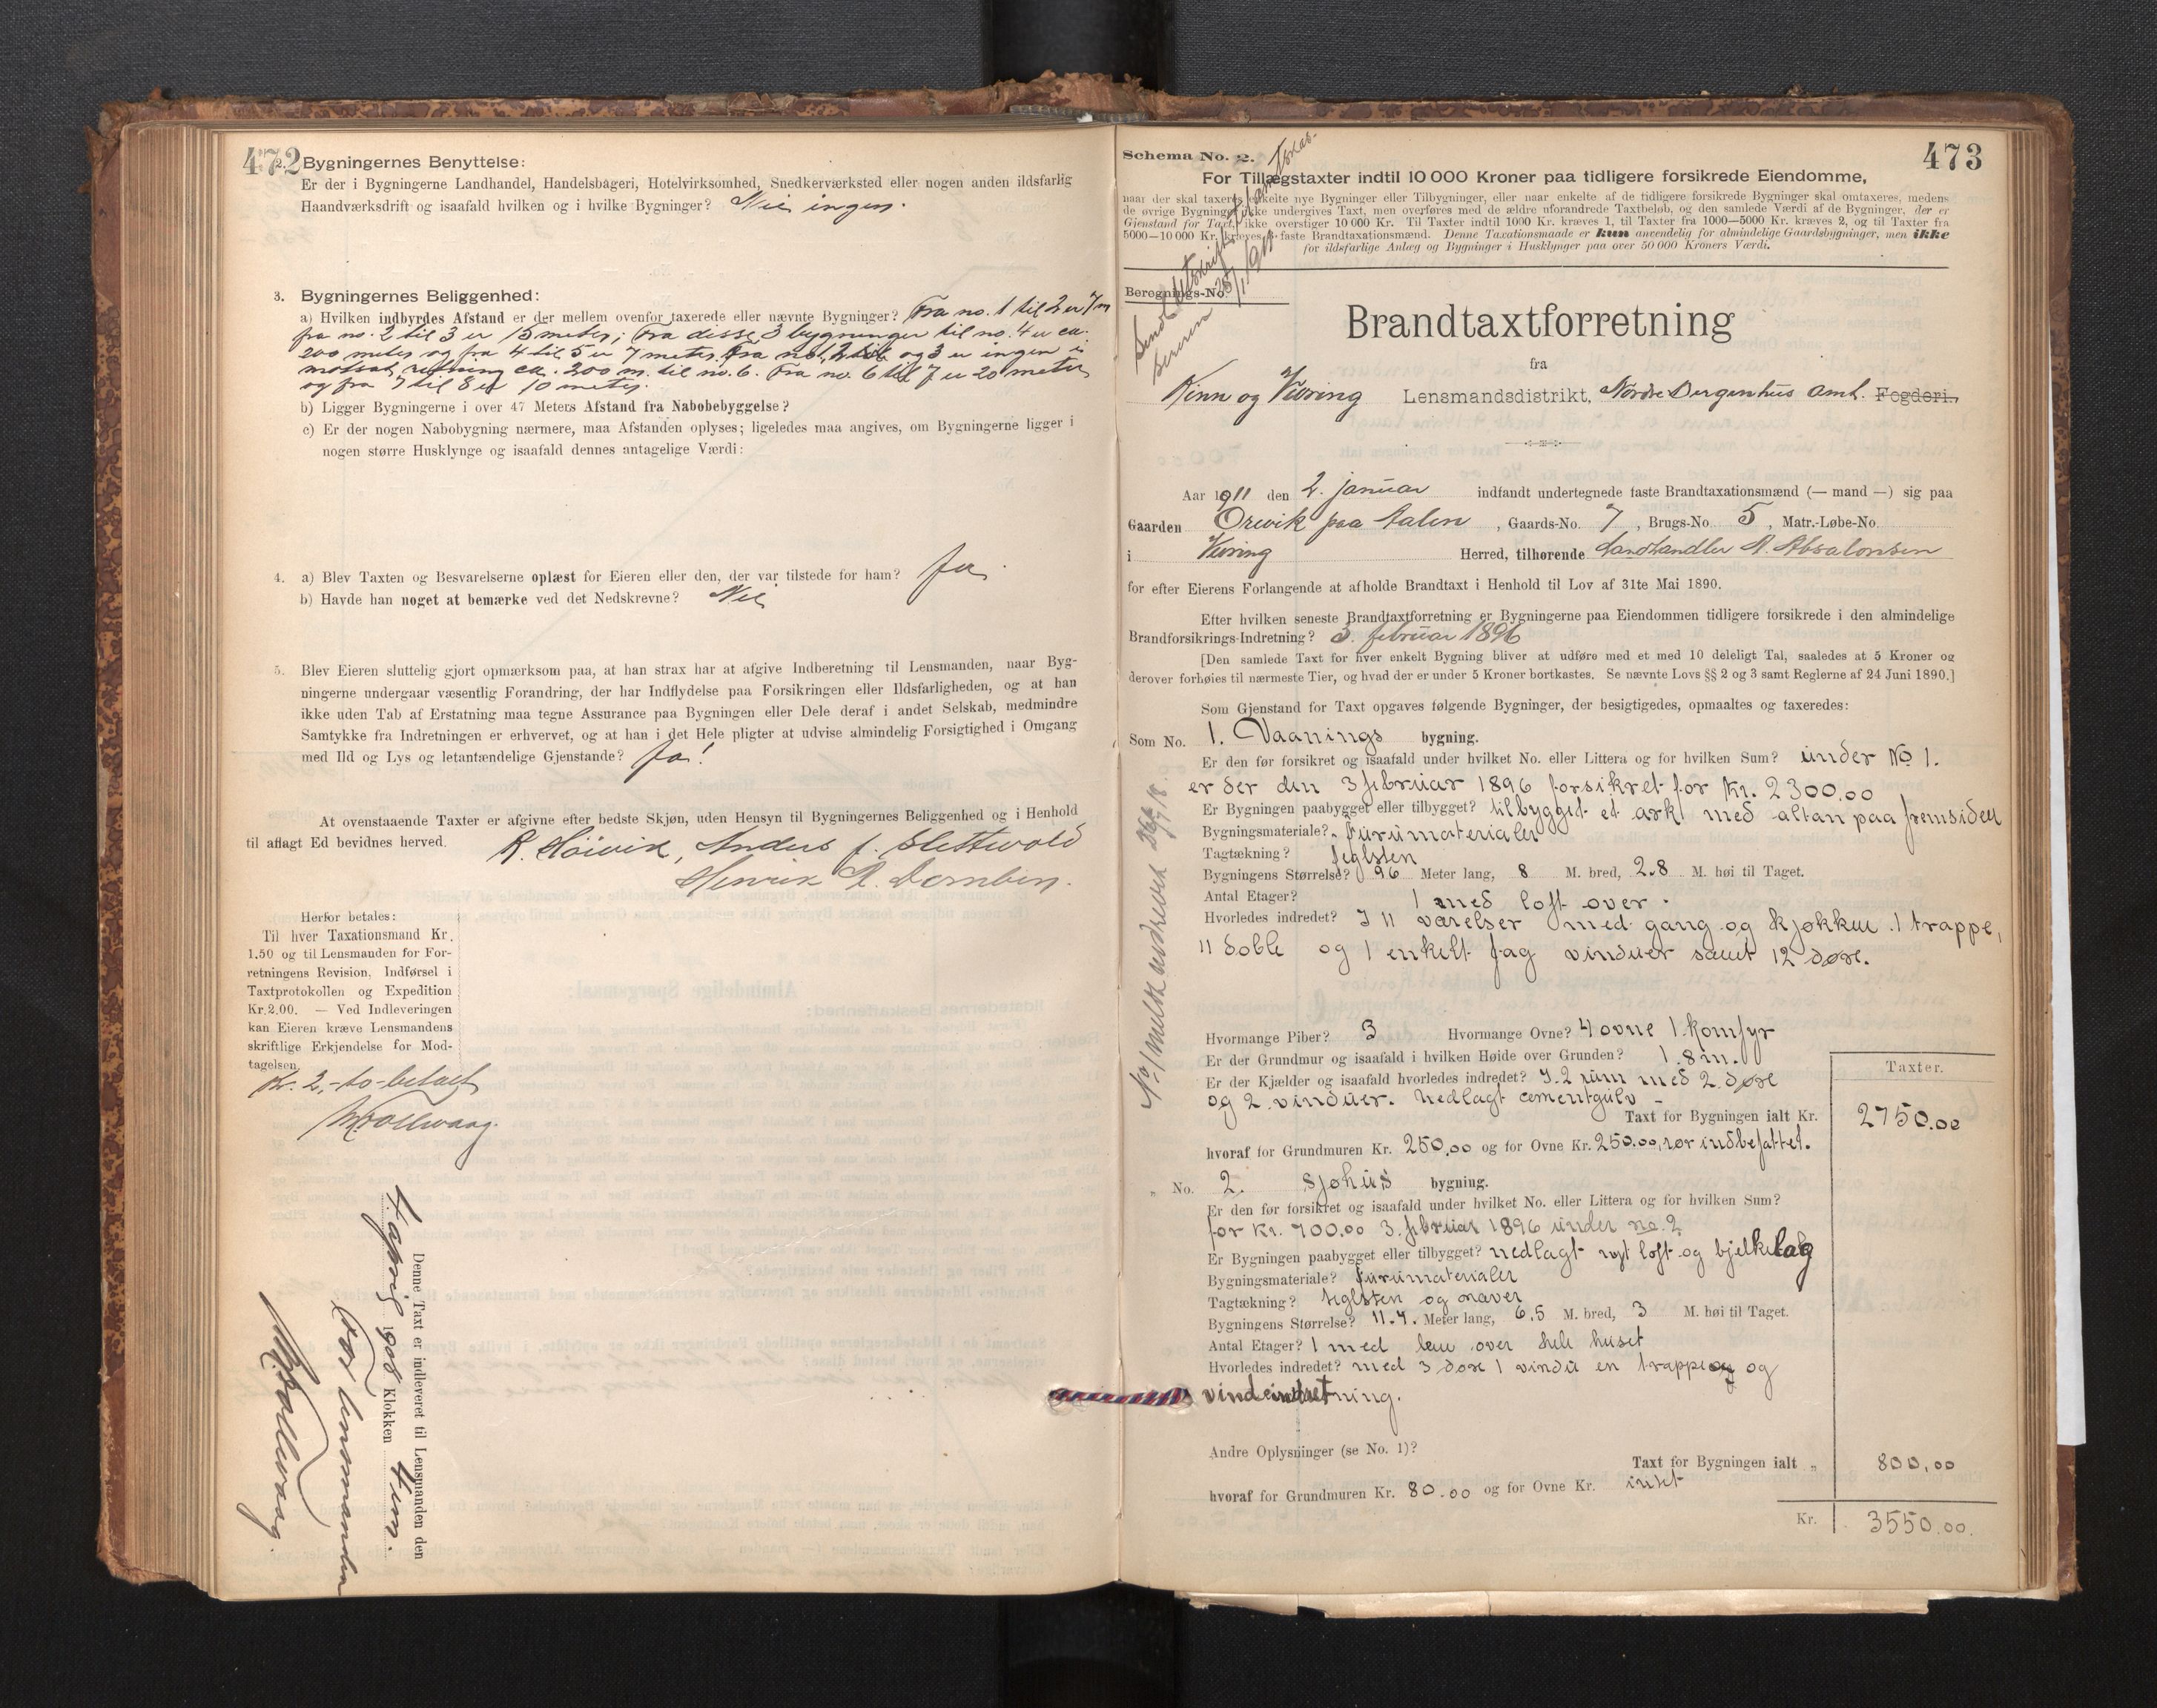 472
2. Bygningernes Benyttelse:
Er der i Bygningerne Landhandel, Handelsbageri, Hotelvirksomhed, Snedkerværksted eller nogen anden ildsfarlig
Haandværksdrift og isaafald hvilken og i hvilke Bygninger? Nei ingen.
3. Bygningernes Beliggenhed:
a) Hvilken indbyrdes Afstand er der mellem ovenfor taxerede eller nævnte Bygninger? Fra no. 1 til 2 er 7 m
fra no. 2 til 3 er 15 meter; Fra disse 3 bygninger til no. 4 er ca.
200 meter og fra 4 til 5 er 7 meter. Fra no 1, 2 og 3 er ingen i
motsat retning ca. 200 m. til no. 6. Fra no. 6 til 7 er 20 meter
og fra 7 til 8 er 10 meter.
b) Ligger Bygningerne i over 47 Meters Afstand fra Nabobebyggelse?
c) Er der nogen Nabobygning nærmere, maa Afstanden oplyses; ligeledes maa angives, om Bygningerne ligger i
nogen større Husklynge og isaafald dennes antagelige Værdi:
4. a) Blev Taxten og Besvarelserne oplæst for Eieren eller den, der var tilstede for ham? Ja.
b) Havde han noget at bemærke ved det Nedskrevne? Nei
5. Blev Eieren sluttelig gjort opmærksom paa, at han strax har at afgive Indberetning til Lensmanden, naar Byg-
ningerne undergaar væsentlig Forandring, der har Indflydelse paa Forsikringen eller Ildsfarligheden, og at han
ikke uden Tab af Erstatning maa tegne Assurance paa Bygningen eller Dele deraf i andet Selskab, medmindre
Samtykke fra Indretningen er erhvervet, og at han i det Hele pligter at udvise almindelig Forsigtighed i Omgang
med Ild og Lys og letantændelige Gjenstande? Ja!
At ovenstaaende Taxter er afgivne efter bedste Skjøn, uden Hensyn til Bygningernes Beliggenhed og i Henhold
til aflagt Ed bevidnes herved. R. Høivik, Anders J.
Henrik A.
Herfor betales:
Til hver Taxationsmand Kr.
1.50 og til Lensmanden for For-
retningens Revision, Indførsel i
Taxtprotokollen og Expedition
Kr. 2.00. — Ved Indleveringen
kan Eieren kræve Lensmandens
skriftlige Erkjendelse for Mod-
tagelsen.
Kr. 2,- to - betalt
Denne Taxt er indleveret til Lensmanden den
4. april 1908 Klokken 4 em.
for lensmanden
Schema No. 2.
473
For Tillægstaxter indtil 10 000 Kroner paa tidligere forsikrede Eiendomme,
naar der skal taxeres enkelte nye Bygninger eller Tilbygninger, eller naar enkelte af de tidligere forsikrede Bygninger skal omtaxeres, medens
de øvrige Bygninger ikke undergives Taxt, men overføres med de ældre uforandrede Taxtbeløb, og den samlede Værdi af de Bygninger, der er
Gjenstand for Taxt, ikke overstiger 10 000 Kr. Til Taxter indtil 1000 Kr. kræves 1, til Taxter fra 1000—5000 Kr. kræves 2, og til Taxter fra
5000—10 000 Kr. kræves faste Brandtaxationsmænd. Denne Taxationsmaade er kun anvendelig for almindelige Gaardsbygninger, men ikke
for ildsfarlige Anlæg og Bygninger i Husklynger paa over 50 000 Kroners Værdi.
Beregnings-No.
Brandtaxtforretning
fra
Kinn og Vevring Lensmandsdistrikt, Nordre Bergenhus amt. Fogderi.
Aar 1911 den 2. januar indfandt undertegnede faste Brandtaxationsmænd (— mand —) sig paa
Gaarden Orevik paa Aalen, Gaards-No. 7, Brugs-No. 5, Matr.-Løbe-No.
i Vevring Herred, tilhørende Landhandler A. Absalonsen
for efter Eierens Forlangende at afholde Brandtaxt i Henhold til Lov af 31te Mai 1890.
Efter hvilken seneste Brandtaxtforretning er Bygningerne paa Eiendommen tidligere forsikrede i den almindelige
Brandforsikrings-Indretning? 3. februar 1896
[Den samlede Taxt for hver enkelt Bygning bliver at udføre med et med 10 deleligt Tal, saaledes at 5 Kroner og
derover forhøies til nærmeste Tier, og hvad der er under 5 Kroner bortkastes. Se nævnte Lovs §§ 2 og 3 samt Reglerne af 24 Juni 1890.]
Som Gjenstand for Taxt opgaves følgende Bygninger, der besigtigedes, opmaaltes og taxeredes:
Som No. 1. Vaanings bygning.
Er den før forsikret og isaafald under hvilket No. eller Littera og for hvilken Sum? under No 1.
er der den 3 februar 1896 forsikret for Kr. 2300.00
Er Bygningen paabygget eller tilbygget? tilbygget et ark med altan paa fremsiden
Bygningsmateriale? Furumaterialer
Tagtækning? teglsten
Bygningens Størrelse? 96 Meter lang, 8 M. bred, 2.8 M. høi til Taget.
Antal Etager? 1 med loft over.
Hvorledes indredet? I 11 værelser med gang og kjøkken 1 trappe,
11 doble og 1 enkelt fag vinduer samt 12 døre.
Hvormange Piber? 3 Hvormange Ovne? 4 ovne 1 komfyr
Er der Grundmur og isaafald i hvilken Høide over Grunden? 1.8 m.
Er der Kjælder og isaafald hvorledes indredet? I 2 rum med 2 døre
og 2 vinduer. Nedlagt cementgulv
Taxter.
Taxt for Bygningen ialt Kr. 2750.00
hvoraf for Grundmuren Kr. 250.00 og for Ovne Kr. 250.00, rør indbefattet.
" No. 2. Sjøhus bygning.
Er den før forsikret og isaafald under hvilket No. eller Littera og for hvilken Sum?
for Kr. 700.00 3. februar 1896 under no. 2
Er Bygningen paabygget eller tilbygget? nedlagt nyt loft og bjelkelag
Bygningsmateriale? Furumaterialer
Tagtækning? teglsten og næver
Bygningens Størrelse? 11.4. Meter lang, 6.5 M. bred, 3 M. høi til Taget.
Antal Etager? 1 med lem over hele huset
Hvorledes indredet? med 3 døre 1 vindu en trappe og
vindeindretning.
Andre Oplysninger (se No. 1)?
Taxt for Bygningen ialt " 800,00
hvoraf for Grundmuren Kr. 80.00 og for Ovne Kr. intet
Kr. 3550.00.